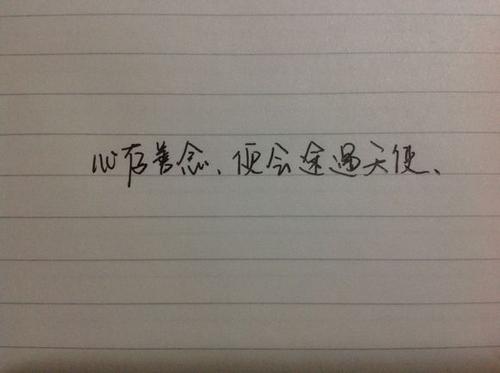 心存善念、便会途遇天使、